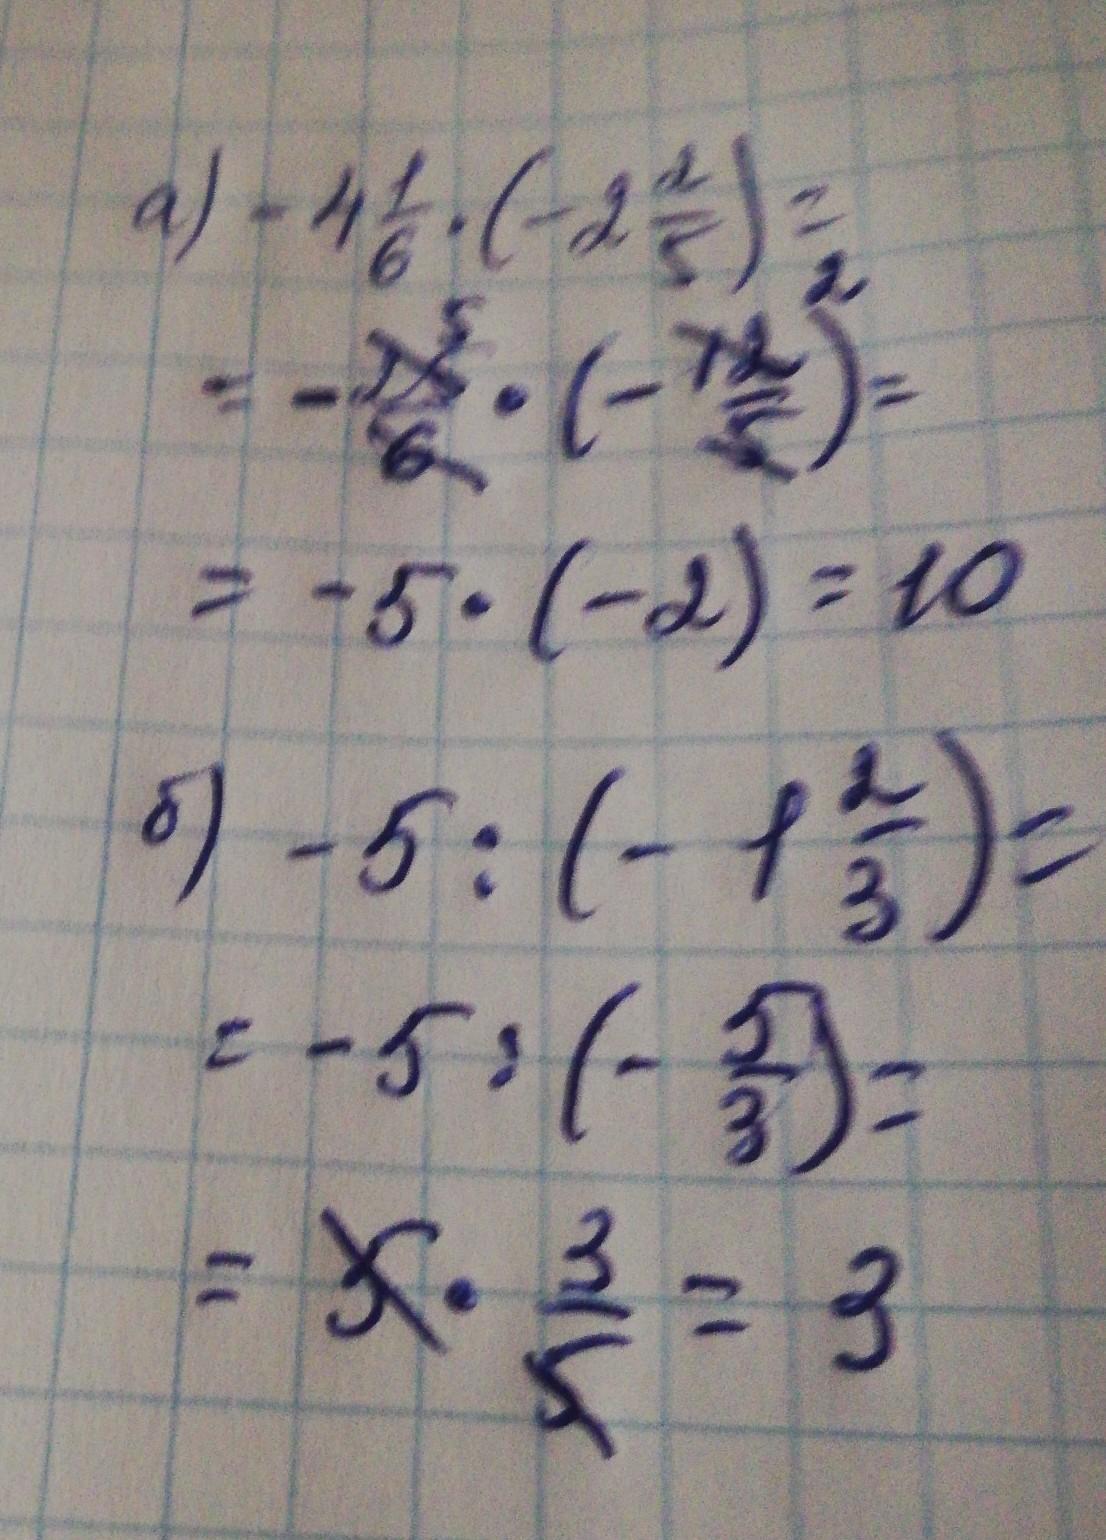 а) - 4 1/6 · (-2 2/5) =
= - 25/6 5 · (- 12/5) 2 =
= -5 · (-2) = 10
б) -5 : (- 1 2/3) =
= -5 : (- 5/3) =
= 5 · 3/5 = 3